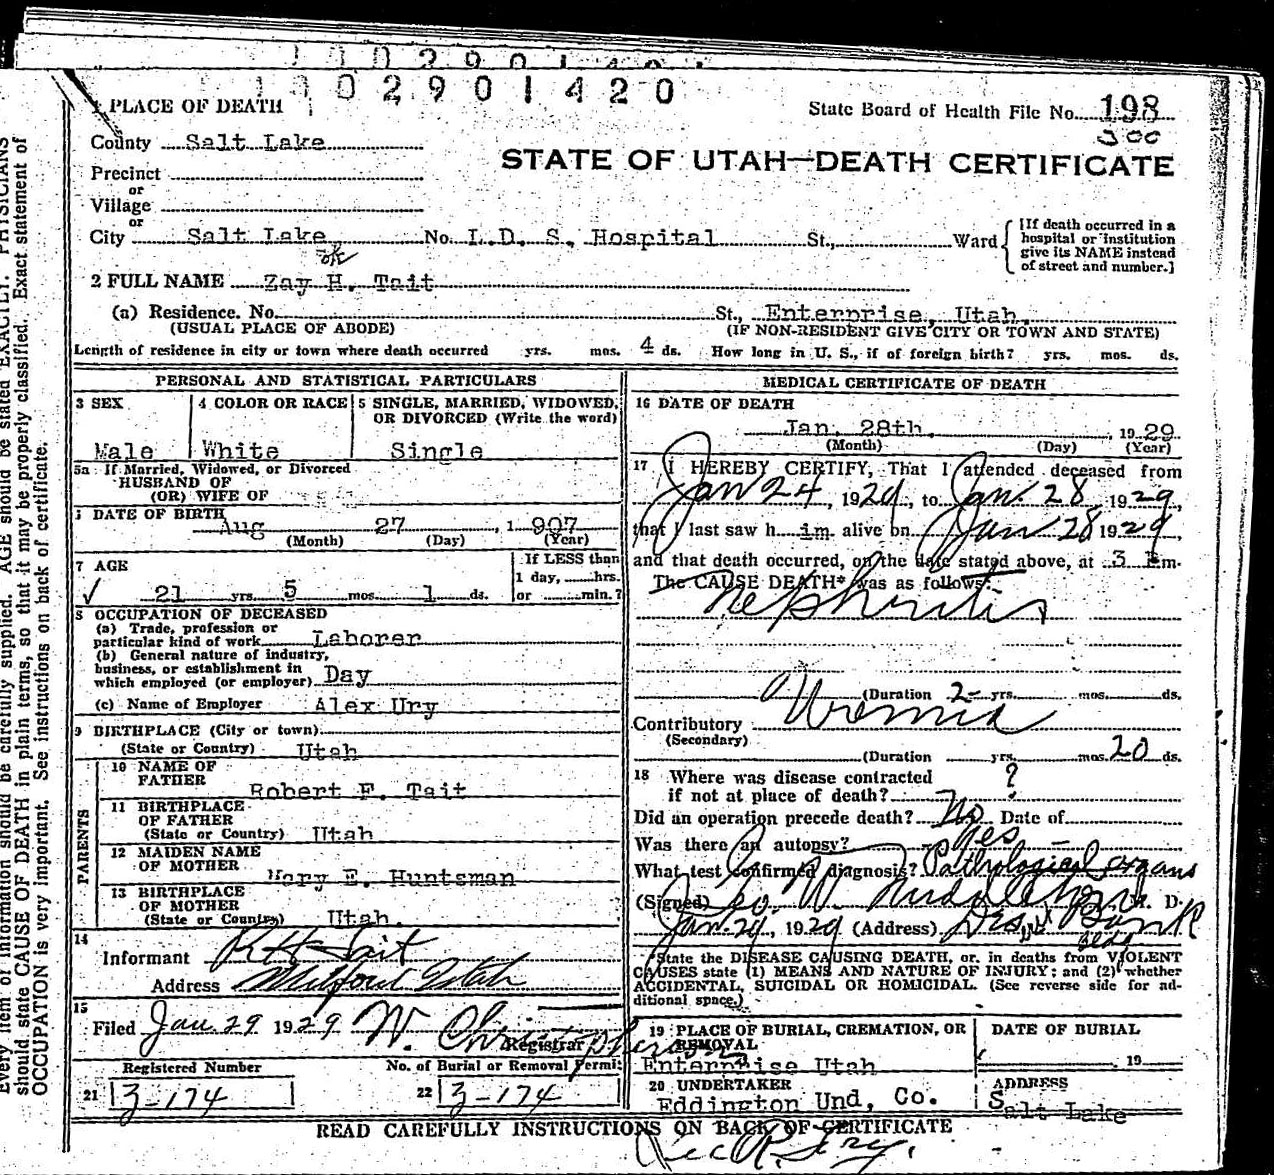 1 0 2 9 0 1 4 2 0
1 PLACE OF DEATH
State Board of Health File No. 198
300
County Salt Lake
STATE OF UTAH—DEATH CERTIFICATE
Precinct
or
Village
or
City Salt Lake No. L. D. S. Hospital St., Ward
[If death occurred in a
hospital or institution
give its NAME instead
of street and number.]
ok
2 FULL NAME Zay H. Tait
(a) Residence. No. St., Enterprise, Utah.
(USUAL PLACE OF ABODE) (IF NON-RESIDENT GIVE CITY OR TOWN AND STATE)
Length of residence in city or town where death occurred yrs. mos. 4 ds. How long in U. S., if of foreign birth? yrs. mos. ds.
PERSONAL AND STATISTICAL PARTICULARS
3 SEX
Male
4 COLOR OR RACE
White
5 SINGLE, MARRIED, WIDOWED,
OR DIVORCED (Write the word)
Single
5a If Married, Widowed, or Divorced
HUSBAND OF
(OR) WIFE OF
DATE OF BIRTH
Aug 27, 1907
(Month) (Day) (Year)
7 AGE
21 yrs. 5 mos. 1 ds.
If LESS than
1 day, hrs.
or min.?
8 OCCUPATION OF DECEASED
(a) Trade, profession or
particular kind of work Laborer
(b) General nature of industry,
business, or establishment in
which employed (or employer) Day
(c) Name of Employer Alex Ury
9 BIRTHPLACE (City or town)
(State or Country) Utah
PARENTS
10 NAME OF
FATHER Robert F. Tait
11 BIRTHPLACE
OF FATHER
(State or Country) Utah
12 MAIDEN NAME
OF MOTHER Mary E. Huntsman
13 BIRTHPLACE
OF MOTHER
(State or Country) Utah
14
Informant R H Tait
Address Milford Utah
15
Filed Jan 29 1929 W. Christopherson
Registrar
Registered Number
21 3-174
No. of Burial or Removal Permit
22 3-174
MEDICAL CERTIFICATE OF DEATH
16 DATE OF DEATH
Jan. 28th, 1929
(Month) (Day) (Year)
17 I HEREBY CERTIFY, That I attended deceased from
Jan 24, 1929, to Jan. 28 1929,
that I last saw h im alive on Jan 28 1929,
and that death occurred, on the date stated above, at 3 P m.
The CAUSE DEATH* was as follows:
Nephritis
(Duration 2 yrs. mos. ds.
Contributory Uremia
(Secondary)
(Duration yrs. mos. 20 ds.
18 Where was disease contracted
if not at place of death? ?
Did an operation precede death? No Date of
Was there an autopsy? yes
What test confirmed diagnosis? Pathological organs
(Signed) Geo. W. Middleton M. D.
Jan. 29, 1929 (Address) Des. Bank
Bldg
*State the DISEASE CAUSING DEATH, or, in deaths from VIOLENT
CAUSES state (1) MEANS AND NATURE OF INJURY; and (2) whether
ACCIDENTAL, SUICIDAL OR HOMICIDAL. (See reverse side for ad-
ditional space.)
19 PLACE OF BURIAL, CREMATION, OR
REMOVAL
Enterprise Utah
DATE OF BURIAL
19
20 UNDERTAKER
Eddington Und, Co.
ADDRESS
Salt Lake
READ CAREFULLY INSTRUCTIONS ON BACK OF CERTIFICATE
Every item of information should be carefully supplied. AGE should be stated EXACTLY. PHYSICIANS
should state CAUSE OF DEATH in plain terms, so that it may be properly classified. Exact statement of
OCCUPATION is very important. See instructions on back of certificate.